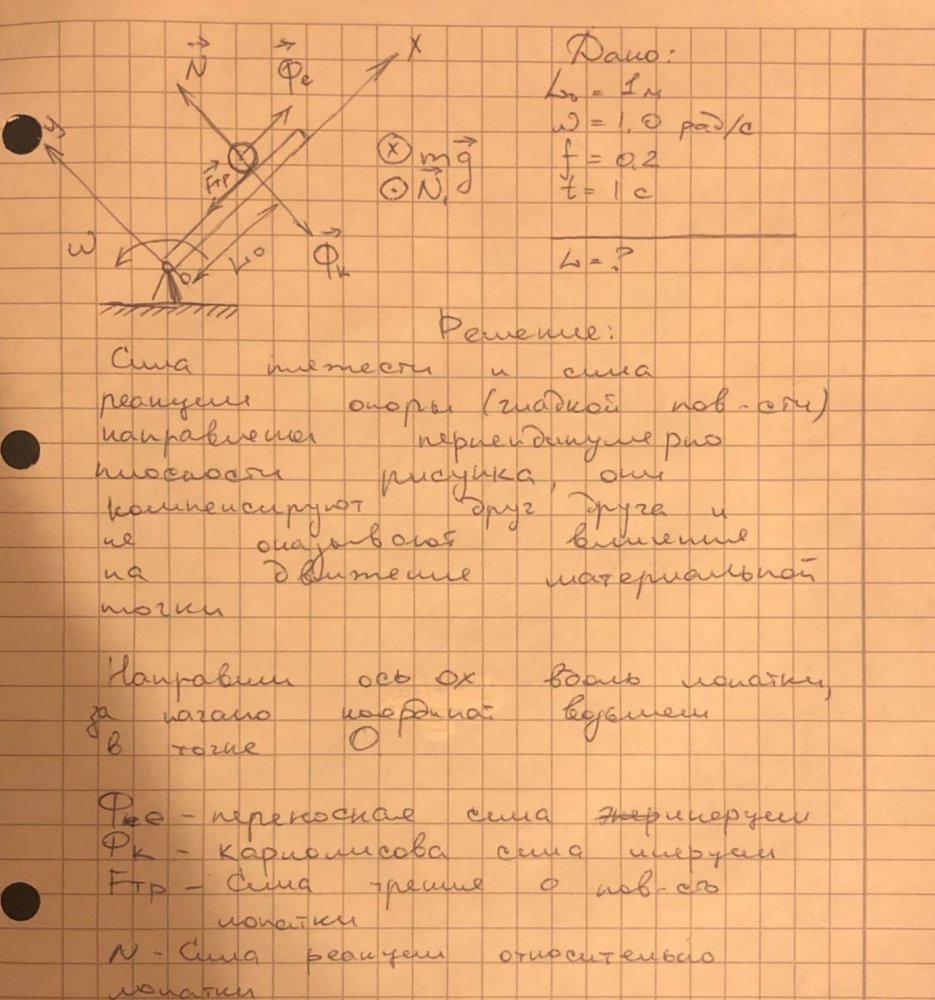 N
Фe
x
y
Fтр
mg
N₁
ω
L₀
O
Фк
Дано:
L₀ = 1 м
ω = 1,0 рад/с
f = 0,2
t = 1 с
L = ?
Решение:
Сила тяжести и сила
реакции опоры (гладкой пов-сти)
направлены перпендикулярно
плоскости рисунка, они
компенсируют друг друга и
не оказывают влияние
на движение материальной
точки
Направим ось OX вдоль лопатки,
за начало координат возьмем
в точке O
Фe - переносная сила инерции
Фк - кариолисова сила инерции
Fтр - Сила трение о пов-сть
лопатки
N - Сила реакции относительно
лопатки